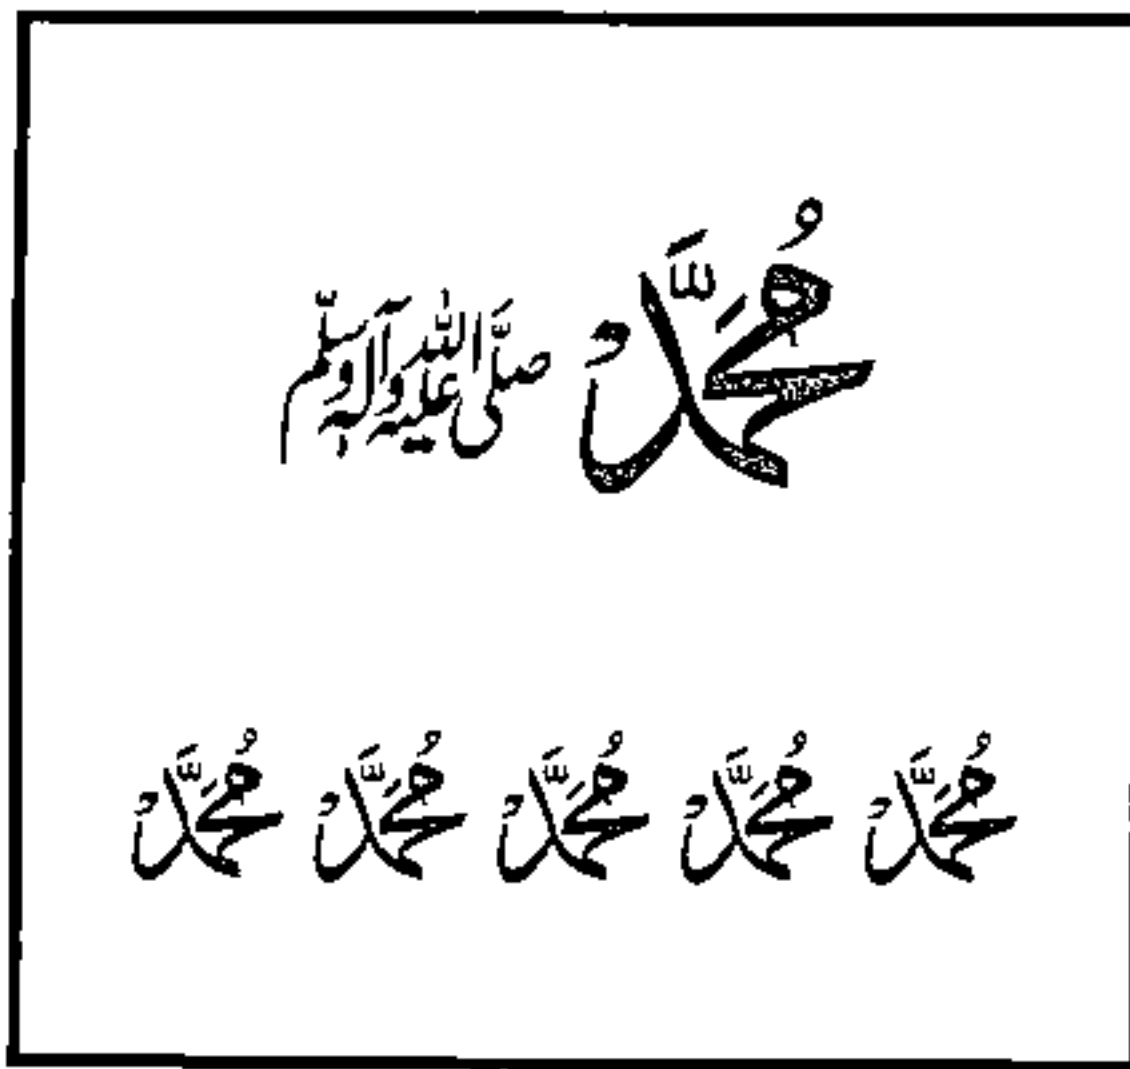 مُحَمَّدٌ صَلَّى اللهُ عَلَيْهِ وَآلِهٖ وَسَلَّم
مُحَمَّدٌ مُحَمَّدٌ مُحَمَّدٌ مُحَمَّدٌ مُحَمَّدٌ